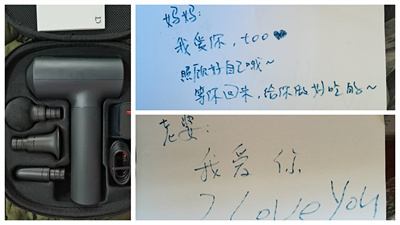 D
妈妈:
我爱你,too♥
照顾好自己哦~
等你回来,给你做好吃的~
老婆:
我爱你
I Love You